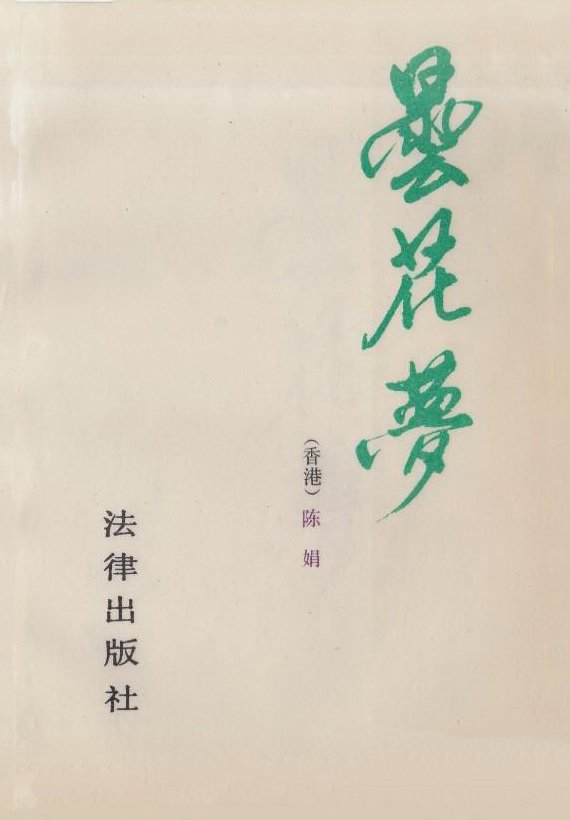 曇花夢
(香港)陈娟
法律出版社